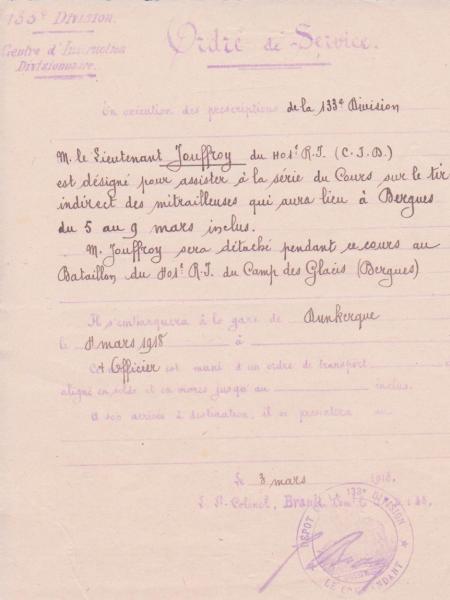 133e Division.
Centre d'Instruction
Divisionnaire.
Ordre de Service.
En exécution des prescriptions de la 133e Division
M. le Lieutenant Jouffroy du 401e R.I. (C.I.D.)
est désigné pour assister à la série du Cours sur le tir
indirect des mitrailleuses qui aura lieu à Bergues
du 5 au 9 mars inclus.
M. Jouffroy sera détaché pendant ce cours au
Bataillon du 401e R.I. du Camp des Glacis (Bergues)
Il s'embarquera à la gare de Dunkerque
le 4 mars 1918 à
1 Officier
est muni d'un ordre de transport
aligné en solde et en vivres jusqu'au inclus.
A son arrivée à destination, il se présentera au
Le 3 mars 1918.
Colonel,
DÉPOT 133e DIVISION
LE COMMANDANT